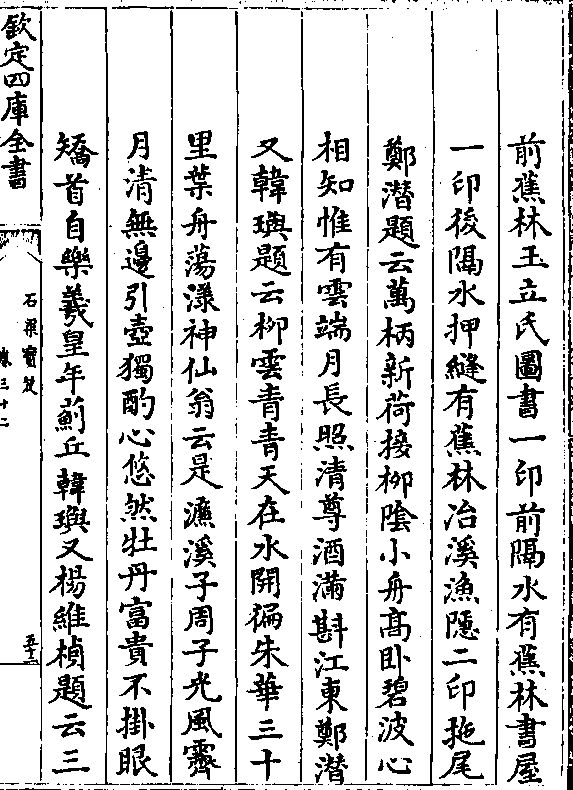 前蕉林玉立氏圖書一印前隔水有蕉林書屋
一印後隔水押縫有蕉林冶溪漁隱二印拖尾
鄭潛題云萬柄新荷接柳陰小舟高卧碧波心
相知惟有雲端月長照清尊酒滿斟江東鄭潛
又韓璵題云柳雲青青天在水開徧朱華三十
里葉舟蕩漾神仙翁云是濂溪子周子光風霽
月清無邊引壺獨酌心悠然牡丹富貴不掛眼
矯首自樂羲皇年薊丘韓璵又楊維楨題云三
欽定四庫全書
石渠寶笈
卷三十二